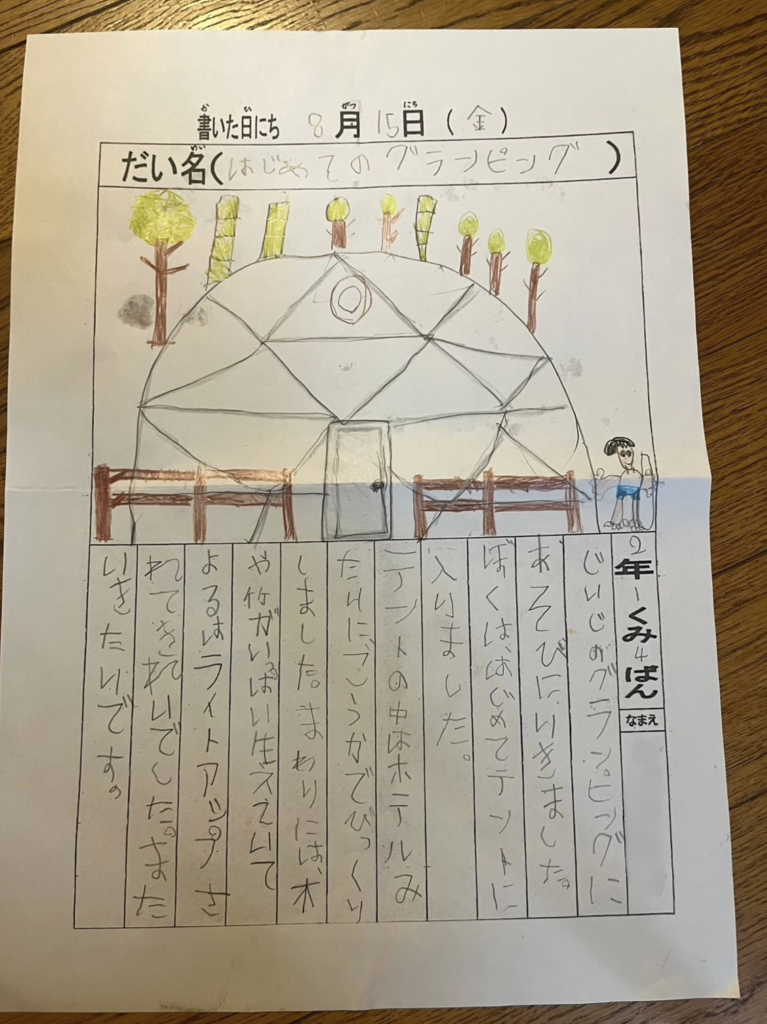 書いた日にち 8月15日(金)
だい名(はじめてのグランピング)
2年1くみ4ばん
なまえ
じいじがグランピングに
あそびにいきました。
ぼくは、はじめてテントに
入りました。
テントの中はホテルみ
たいに、ごうかでびっくり
しました。まわりには、木
や竹がいっぱい生えていて
よるはライトアップさ
れてきれいでした。また
いきたいです。